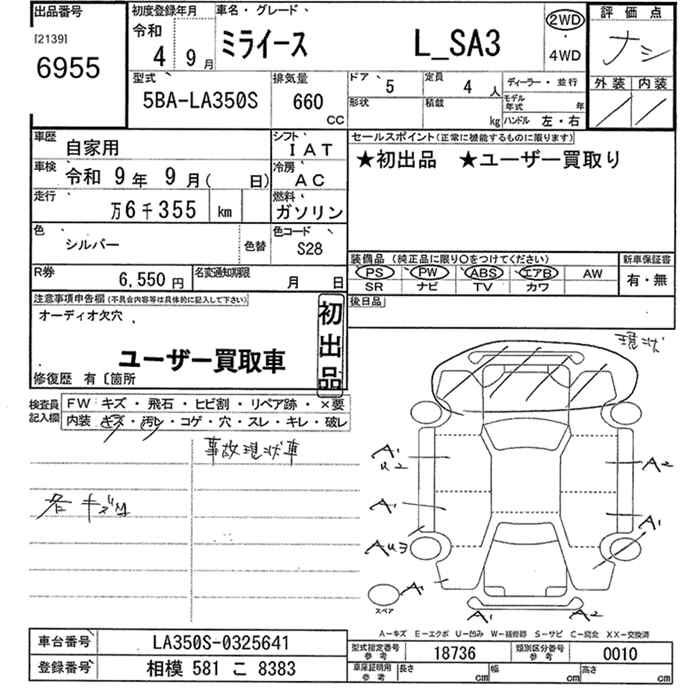 出品番号
[2139]
6955
初度登録年月
令和
4 9月
車名・グレード
ミライース L_SA3
2WD
・
4WD
評価点
ナシ
外装 内装
型式
5BA-LA350S
排気量
660
cc
ドア 5
定員 4人
ディーラー・並行
形状
積載 kg
モデル年式 年
ハンドル 左・右
車歴 自家用
シフト IAT
車検 令和 9年 9月( 日)
冷房 AC
走行 万6千355 km
燃料 ガソリン
色 シルバー 色替
色コード S28
R券 6,550円
名変通知期限 月 日
セールスポイント(正常に機能するものに限ります)
★初出品 ★ユーザー買取り
装備品(純正品に限り○をつけてください)
PS PW ABS エアB AW
SR ナビ TV カワ
新車保証書
有・無
後日品
注意事項申告欄(不具合内容等は具体的に記入して下さい)
オーディオ欠穴
ユーザー買取車
初出品
修復歴 有〔箇所
検査員記入欄
FW キズ・飛石・ヒビ割・リペア跡・×要
内装 キズ・汚レ・コゲ・穴・スレ・キレ・破レ
事故現状車
現状
A1
U2
A2
A1
A1
AU3
A1
スペア
A1
A2
A-キズ E-エクボ U-凹み W-補修跡 S-サビ C-腐北 XX-交換済
車台番号 LA350S-0325641
登録番号 相模 581 こ 8383
型式指定番号 参考 18736
類別区分番号 参考 0010
車庫証明用 参考 長さ cm 幅 cm 高さ cm